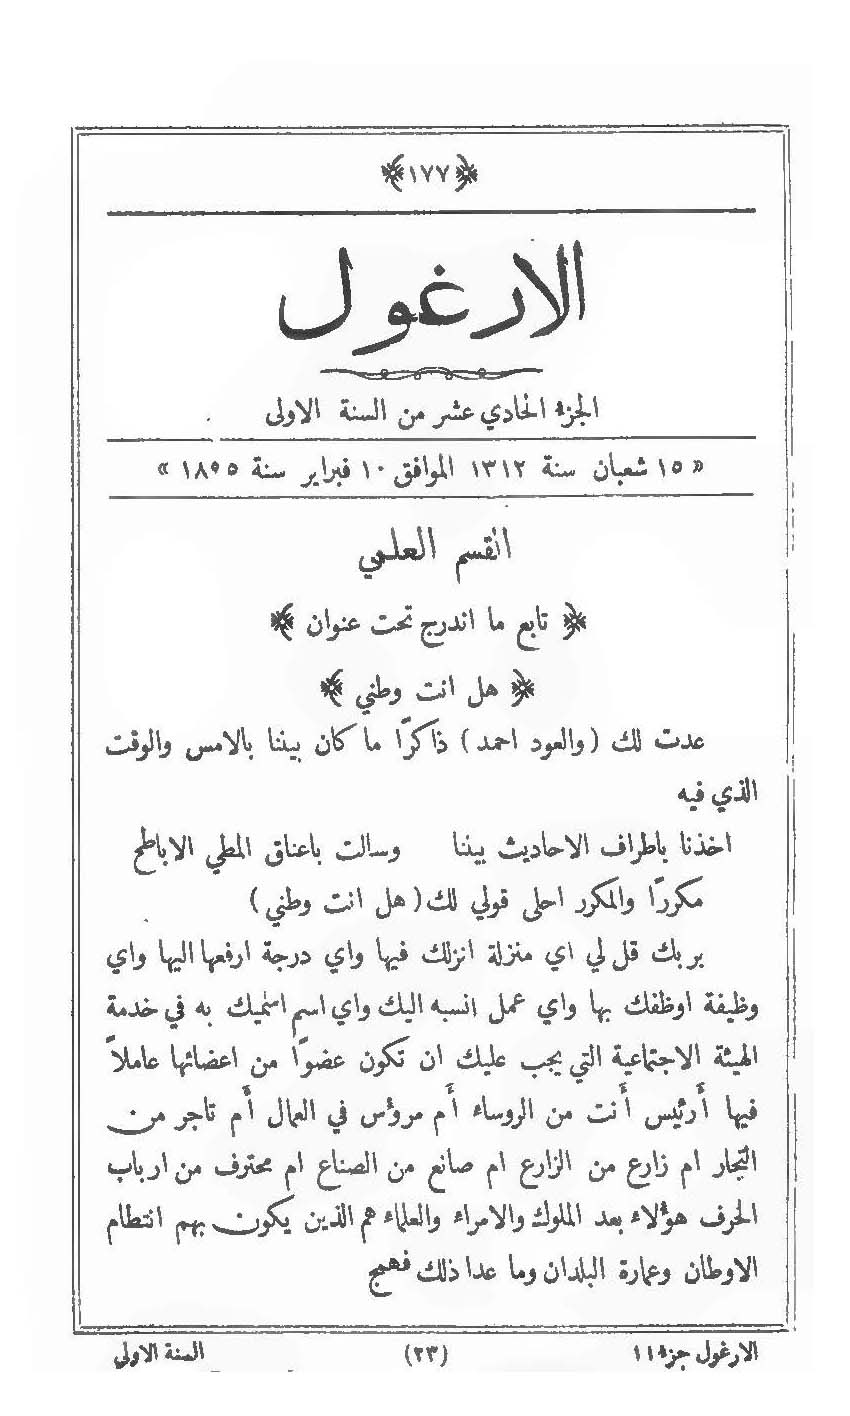 ﴿١٧٧﴾
الارغول
الجزء الحادي عشر من السنة الاولى
«١٥ شعبان سنة ١٣١٢ الموافق ١٠ فبراير سنة ١٨٩٥»
القسم العلمي
﴿ تابع ما اندرج تحت عنوان ﴾
﴿ هل انت وطني ﴾
عدت لك (والعود احمد) ذاكرًا ما كان بيننا بالامس والوقت
الذي فيه
اخذنا باطراف الاحاديث بيننا وسالت باعناق المطي الاباطح
مكررًا والمكرر احلى قولي لك (هل انت وطني)
بربك قل لي اي منزلة انزلك فيها واي درجة ارفعها اليها واي
وظيفة اوظفك بها واي عمل انسبه اليك واي اسم اسميك به في خدمة
الهيئة الاجتماعية التي يجب عليك ان تكون عضوًا من اعضائها عاملاً
فيها أرئيس أنت من الروساء أم مرؤس في العمال أم تاجر من
التجار ام زارع من الزارع ام صانع من الصناع ام محترف من ارباب
الحرف هؤلاء بعد الملوك والامراء والعلماء هم الذين يكون بهم انتظام
الاوطان وعمارة البلدان وما عدا ذلك فهمج
الارغول جزء ١١ (٢٣) السنة الاولى